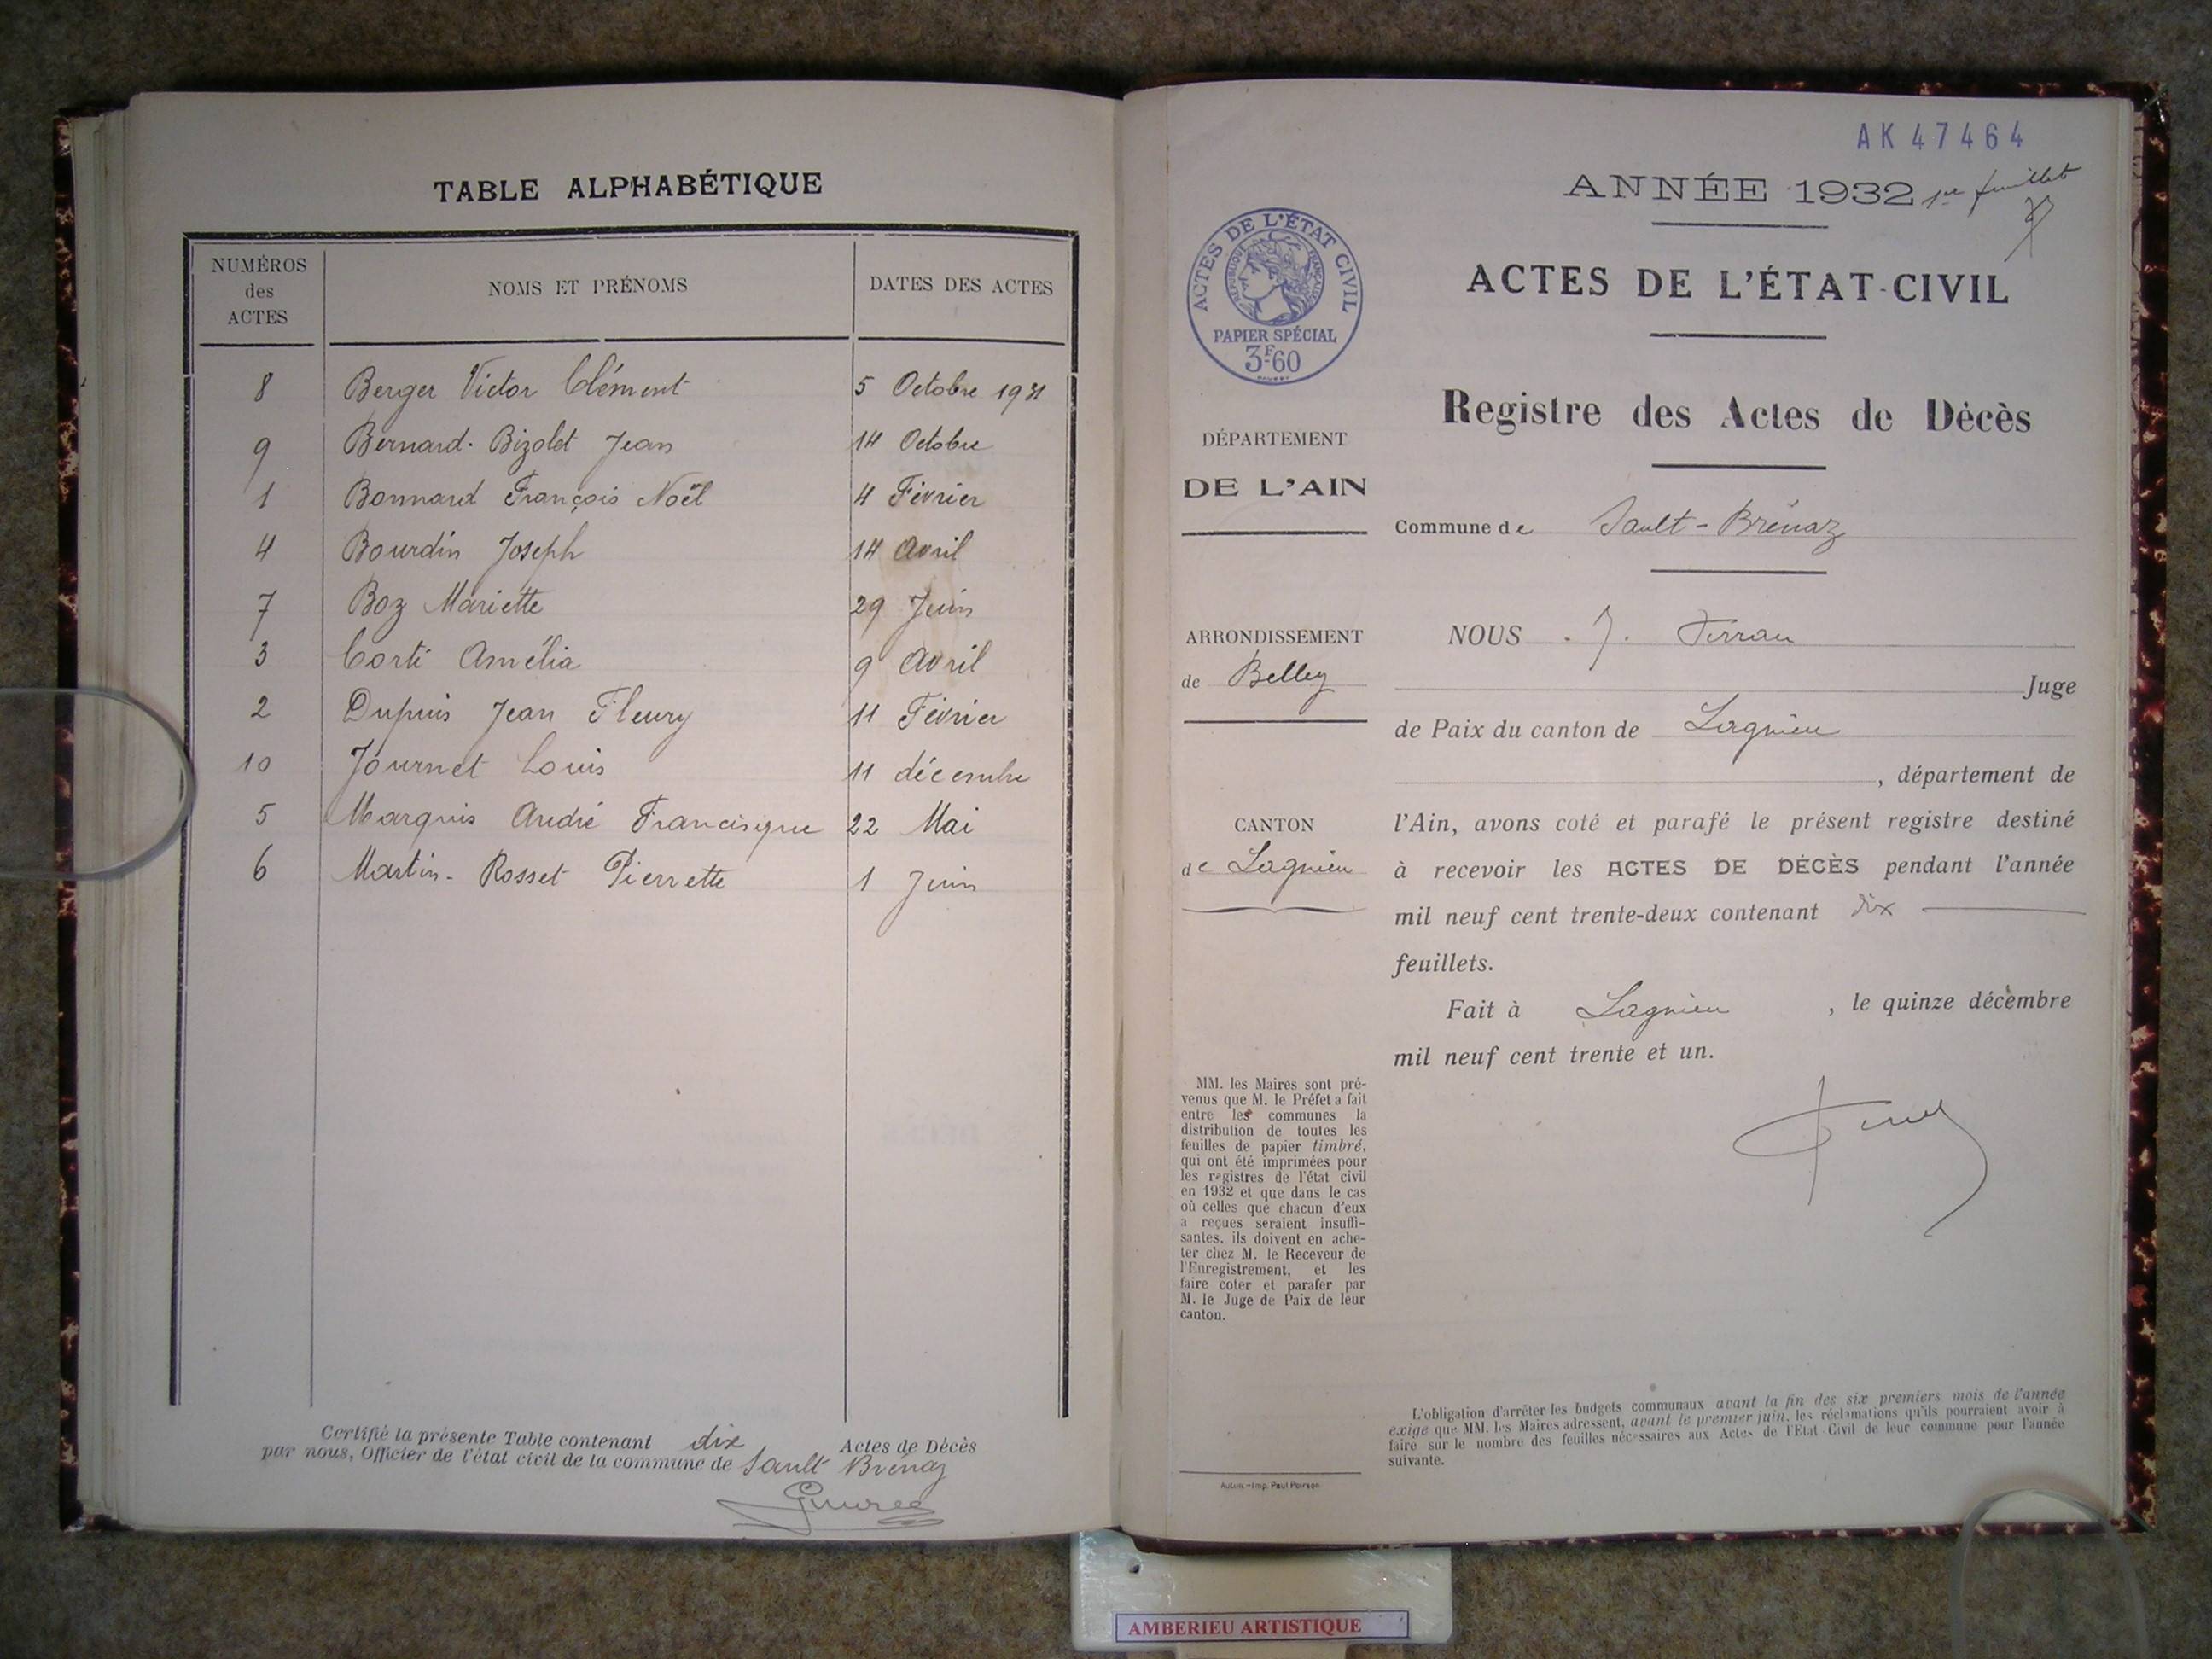 TABLE ALPHABÉTIQUE
NUMÉROS
des
ACTES
NOMS ET PRÉNOMS
DATES DES ACTES
8 Berger Victor Clément 5 Octobre 1931
9 Bernard-Bizolet Jean 14 Octobre
1 Bonnard François Noël 4 Février
4 Bourdin Joseph 14 Avril
7 Boz Mariette 29 Juin
3 Corti Amélia 9 Avril
2 Dupuis Jean Fleury 11 Février
10 Journet Louis 11 décembre
5 Marquis André Francisque 22 Mai
6 Martin-Rosset Pierrette 1 Juin
Certifié la présente Table contenant dix Actes de Décès
par nous, Officier de l'état civil de la commune de Sault Brénaz
AK 47464
ANNÉE 1932 1er feuillet
ACTES DE L'ÉTAT CIVIL
RÉPUBLIQUE FRANÇAISE
PAPIER SPÉCIAL
3F60
ACTES DE L'ÉTAT-CIVIL
Registre des Actes de Décès
DÉPARTEMENT
DE L'AIN
Commune de Sault-Brénaz
ARRONDISSEMENT
de Belley
NOUS . J.
Juge
de Paix du canton de Lagnieu
, département de
CANTON
de Lagnieu
l'Ain, avons coté et parafé le présent registre destiné
à recevoir les ACTES DE DÉCÈS pendant l'année
mil neuf cent trente-deux contenant dix
feuillets.
Fait à Lagnieu , le quinze décembre
mil neuf cent trente et un.
MM. les Maires sont pré-
venus que M. le Préfet a fait
entre les communes la
distribution de toutes les
feuilles de papier timbré,
qui ont été imprimées pour
les registres de l'état civil
en 1932 et que dans le cas
où celles que chacun d'eux
a reçues seraient insuffi-
santes, ils doivent en ache-
ter chez M. le Receveur de
l'Enregistrement, et les
faire coter et parafer par
M. le Juge de Paix de leur
canton.
L'obligation d'arrêter les budgets communaux avant la fin des six premiers mois de l'année
exige que MM. les Maires adressent, avant le premier juin, les réclamations qu'ils pourraient avoir à
faire sur le nombre des feuilles nécessaires aux Actes de l'Etat Civil de leur commune pour l'année
suivante.
Autun. - Imp. Paul Poirson
AMBERIEU ARTISTIQUE